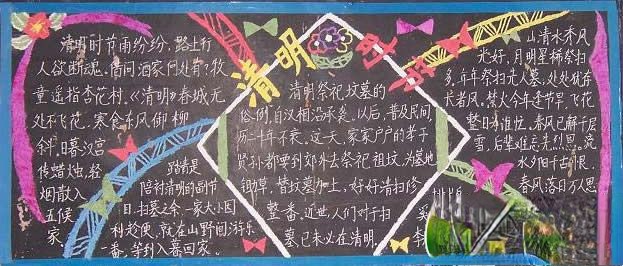 清明时节
清明时节雨纷纷，路上行
人欲断魂。借问酒家何处有？牧
童遥指杏花村。《清明》春城无
处不飞花，寒食东风御柳
斜，日暮汉宫
传蜡烛，轻
烟散入
五侯
家
踏青是
陪衬清明的副节
日，扫墓之余，一家大小因
利趁便，就在山野间游乐
一番，等到入暮回家。
清明祭祀坟墓的
俗例，自汉相沿承袭，以后，普及民间，
历二千年不衰。这天，家家户户的孝子
贤孙都要到郊外去祭祀祖坟，为墓地
锄草，替坟墓加土，好好清扫修
整一番。近世人们对于扫
墓，已未必在清明。
山清水秀风
光好，月明星稀祭扫
多。年年祭扫先人墓，处处犹存
长者风。禁火今年逢节早，飞花
整日
春风已解千层
雪，后辈难忘先烈恩。流
水夕阳千古恨，
春风落日万人思
排版